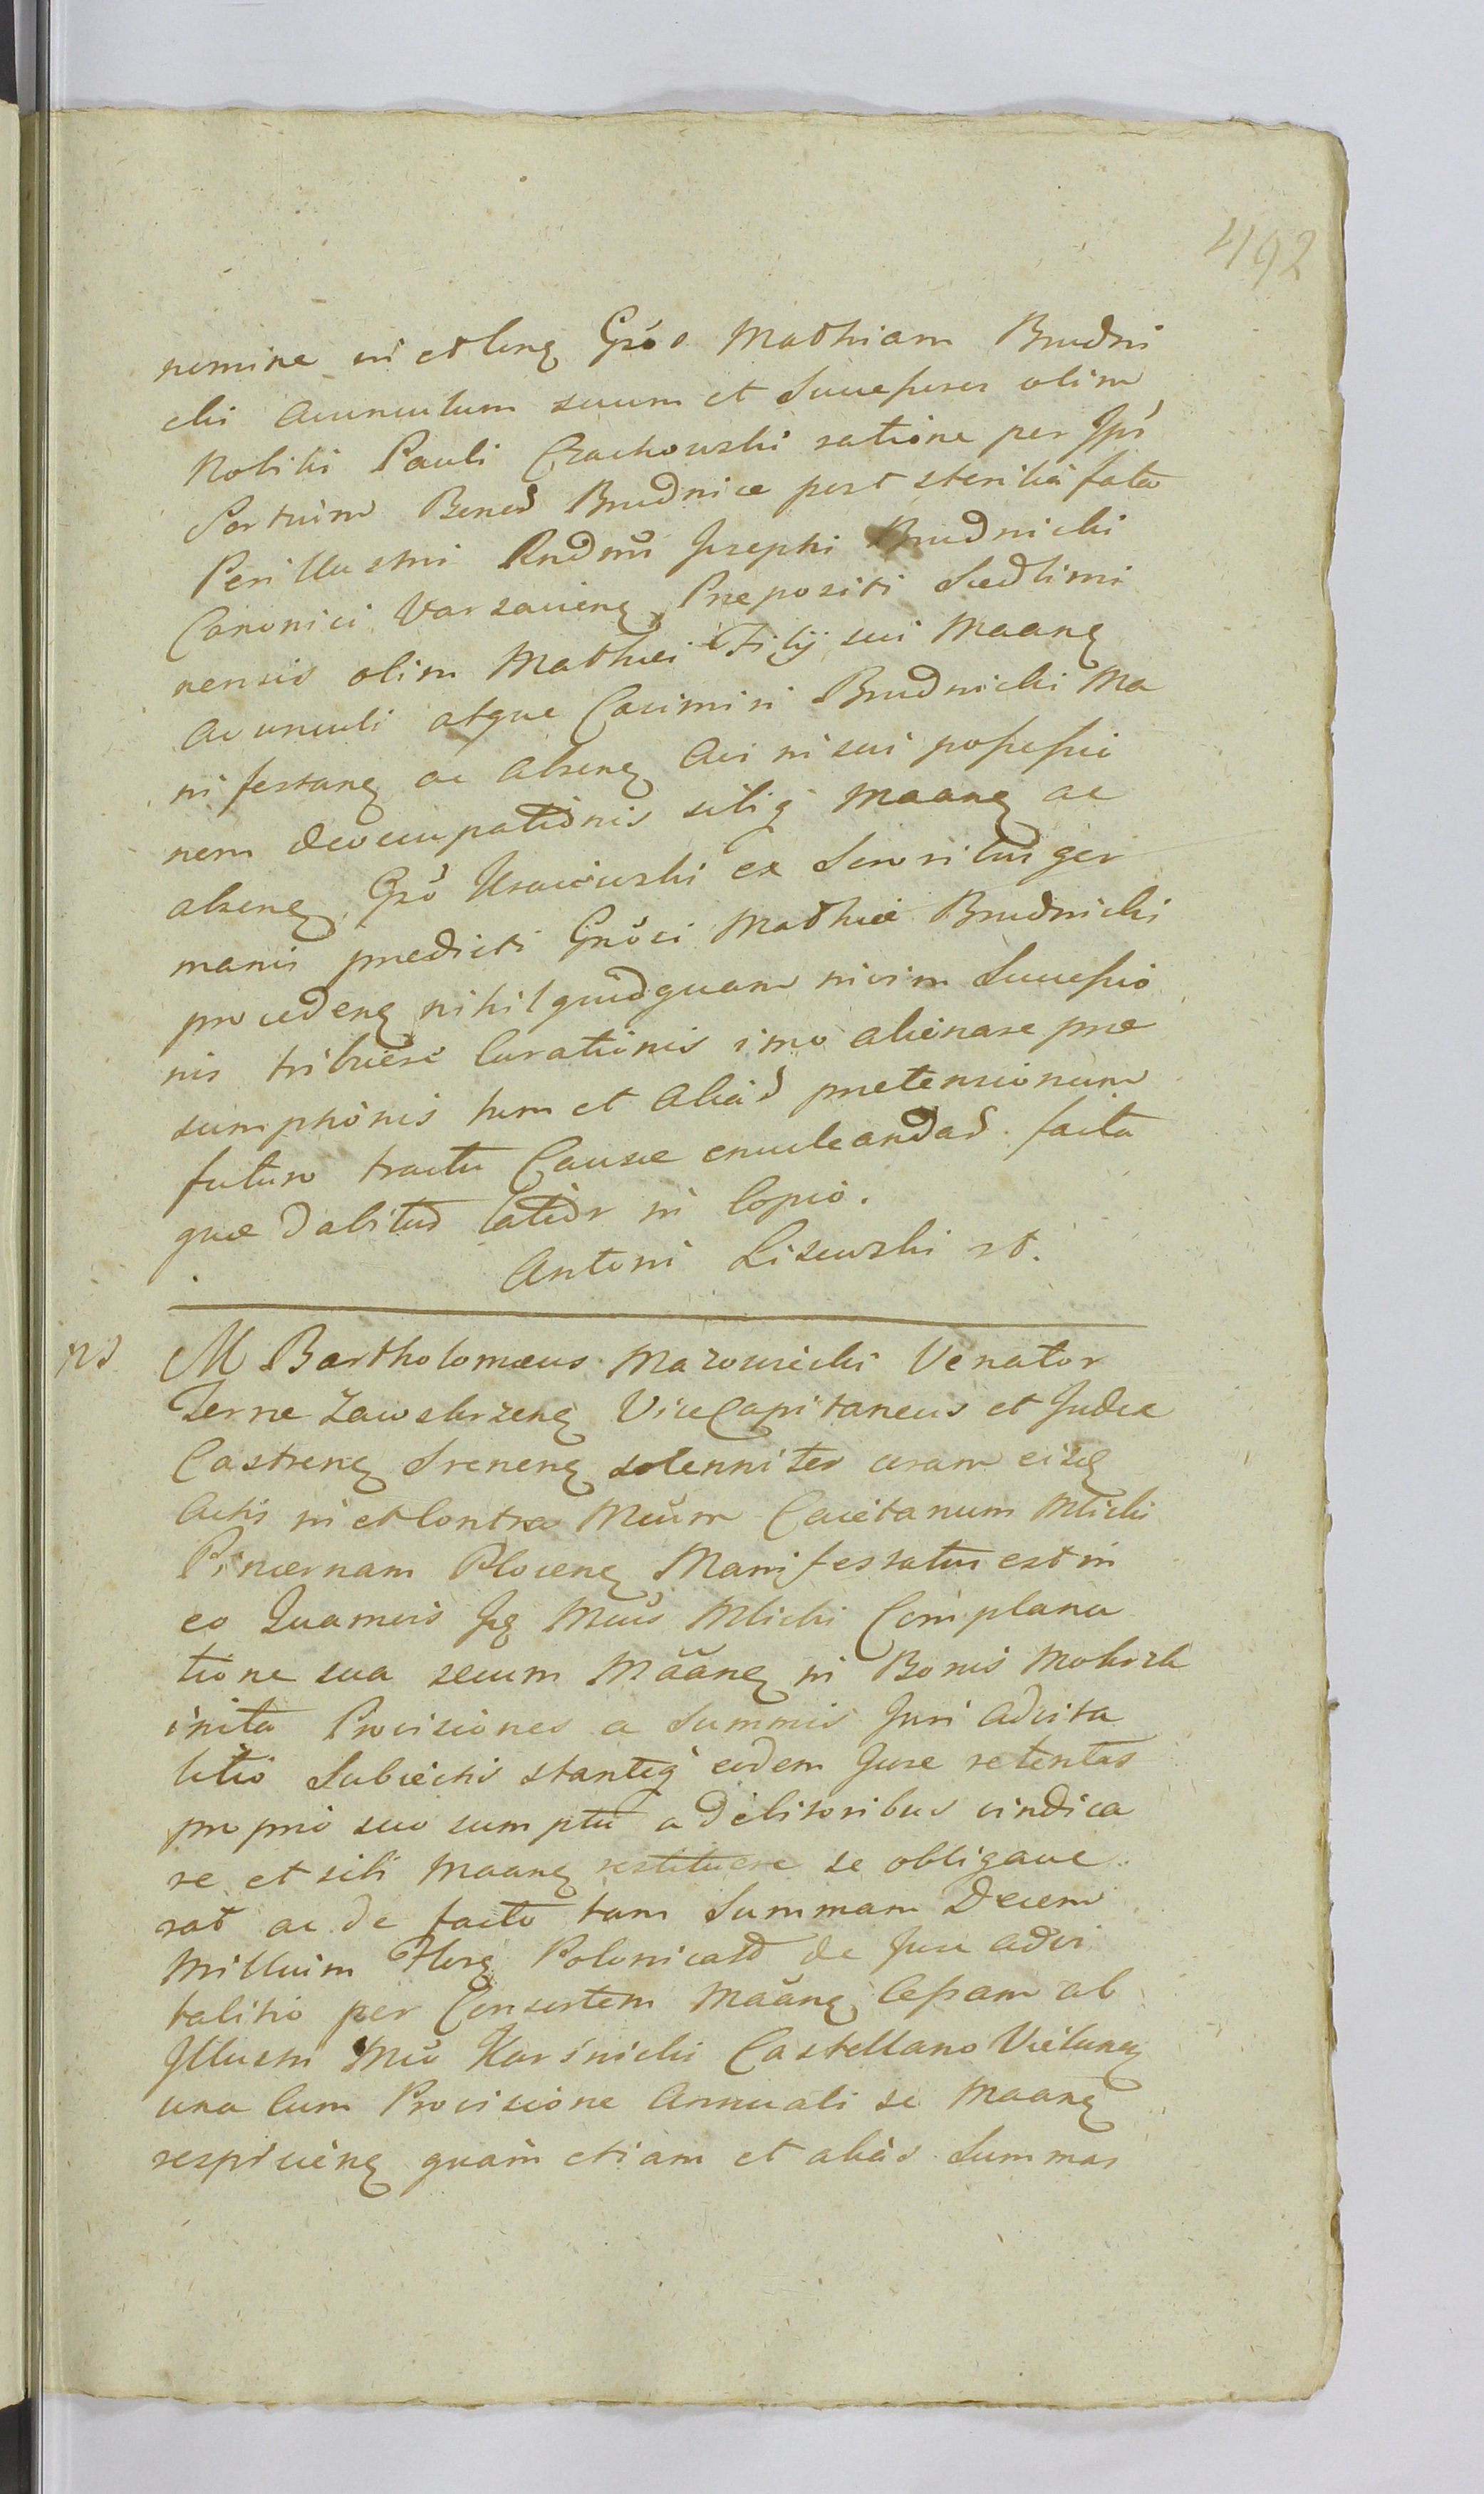 492
nomine in et Cong Gsos Mathiam Brudni
cki avunculum suum et Successores olim
Nobilis Pauli Czachowski ratione per Ipsi
Sortium Bonod Brudnice post sterilia fata
Perillustri Rndmi Josephi Brudnicki
Canonici Varsavieng Prepositi Siedlimi
nensis olim Mathiei Filÿ sui Maang
avunculi atque Casimiri Brudnicki Ma
nifestang ac abseng Avi in sui possessio
nem deoccupationis sibiq Maang ac
abseng Gso Ucaiowski ex Sororibus ger
manis predicti Gnosi Mathiei Brudnicki
procedeng nihil quidquam vivim Successio
nis tribuere Curationis imo alienare pre
sumptionis tum et aliad pretensionum
futuro tractu Cause enucleandad. facta
que dabitud latidr in Copio.
Antoni Lisewski st.
ns
M Bartholomæus Mazowiecki Venator
Terre Zawskrzeng ViceCapitaneus et Judex
Castreng Sreneng solenniter coram eisq
Actis in et Contra Mcum Caietanum Mlicki
Pincernam Ploceng Manifestatus est in
eo Quamvis Iq Mcus Mlicki Complana
tione sua secum Maang in Bonis Mokrzk
inita Provisiones a Summis Juri Advita
litio Subiectis stanteq eodem Jure retentas
proprio suo sumptu a debitoribus vindica
re et sibi Maang restituere se obligave
rat ac de facto tam Summam Decem
Millium Florg Polonicard de Jure advi
talitio per Consortem Maang Cessam ab
Illustri Mco Karśnicki Castellano Vieluneg
una Cum Provisione Annuali se Maang
respicieng quam etiam et alias Summas